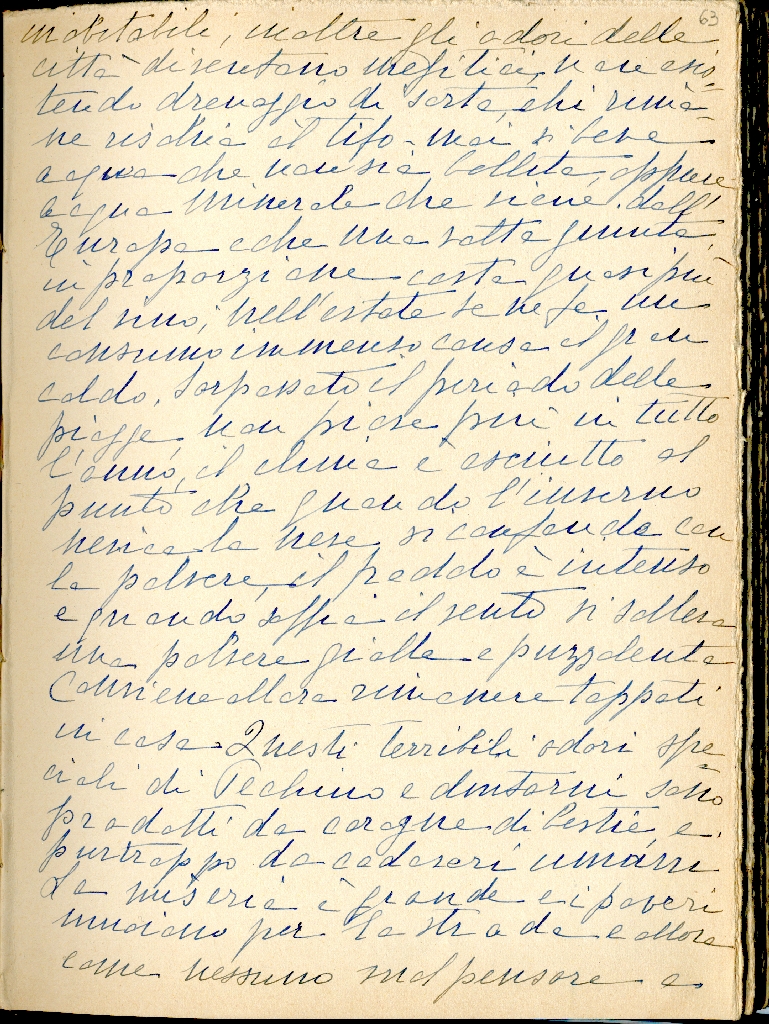 63
inabitabili, inoltre gli odori delle
città diventano mefitici, non esis-
tendo drenaggio di sorta, chi rima-
ne rischia il tifo - mai si beve
acqua che non sia bollita, oppure
acqua minerale che viene dall'
Europa e che una volta giunta,
in proporzione costa quasi più
del vino; nell'estate se ne fa un
consumo immenso causa il gran
caldo. Sorpassato il periodo delle
piogge, non piove più in tutto
l'anno, il clima è asciutto al
punto che quando l'inverno
nevica la neve si confonde con
la polvere, il freddo è intenso
e quando soffia il vento si solleva
una polvere gialla e puzzolente
Conviene allora rimanere tappati
in casa - Questi terribili odori spe-
ciali di Pechino e dintorni sono
prodotti da carogne di bestie, e
purtroppo da cadaveri umani
La miseria è grande e i poveri
muoiono per la strada e allora
come nessuno vuol pensare a